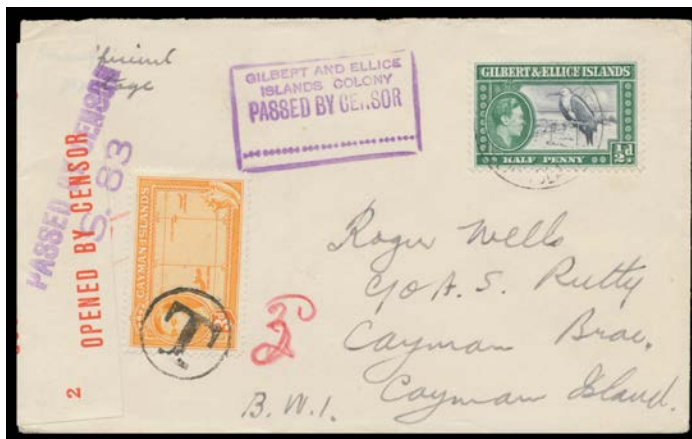 GILBERT AND ELLICE
ISLANDS COLONY
PASSED BY CENSOR
GILBERT & ELLICE ISLANDS
½d
HALF PENNY
PASSED BY CENSOR
S. 83
2 OPENED BY CENSOR
CAYMAN ISLANDS
T
Roger Wells
c/o A. S. Rutty
Cayman Brac.
Cayman Island.
B.W.I.